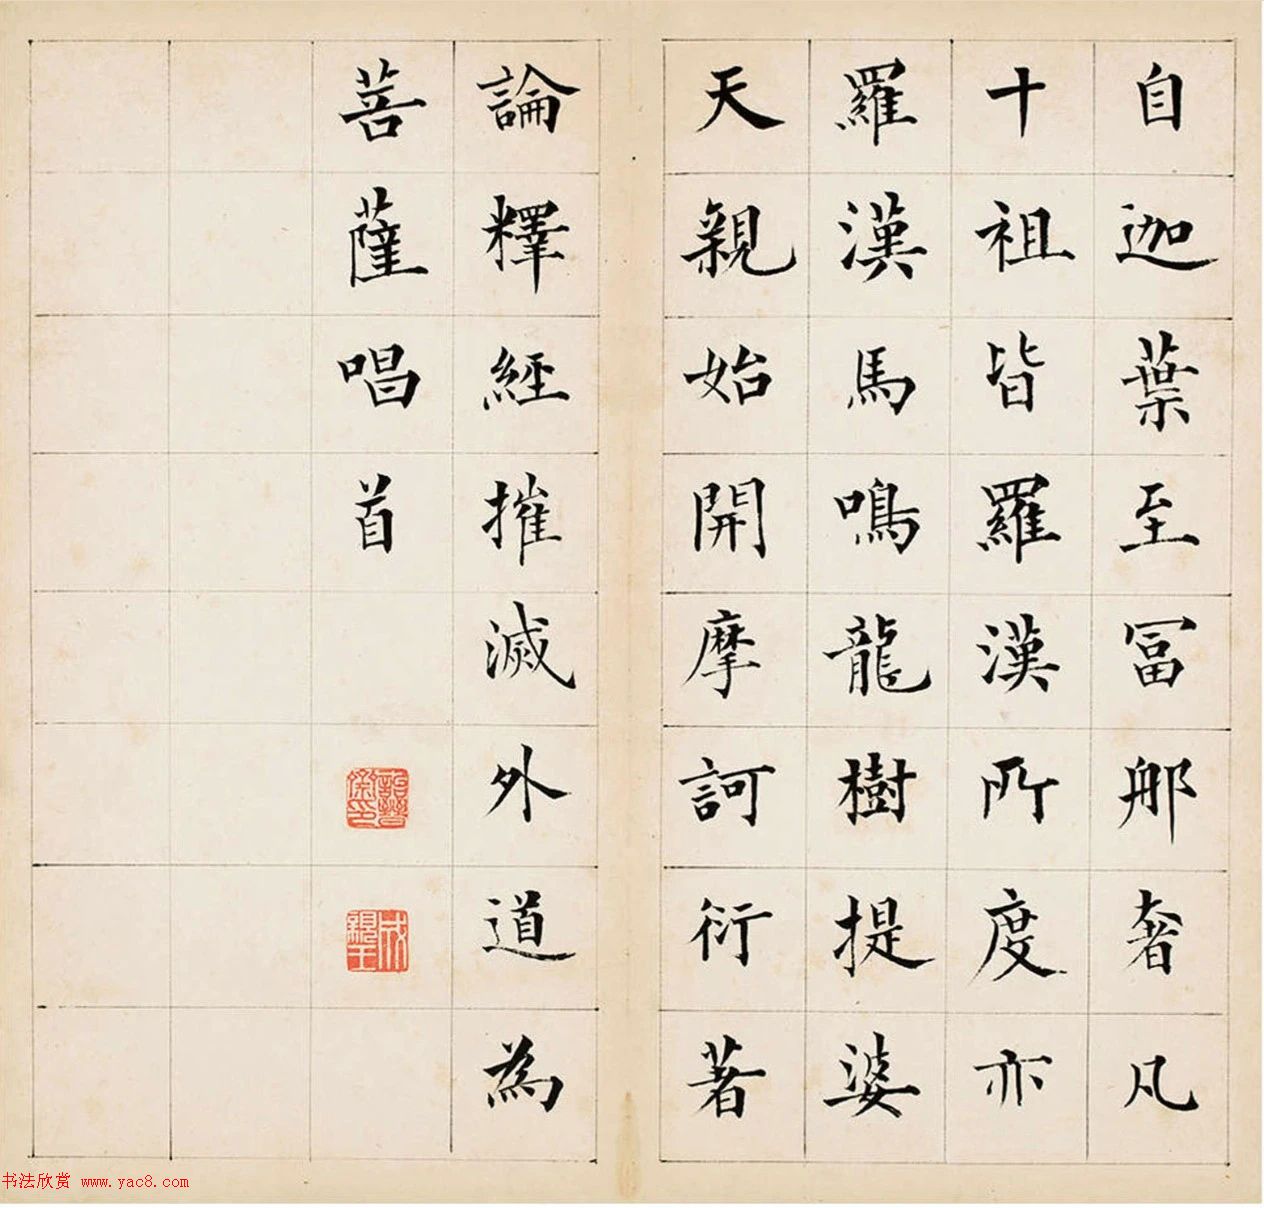 自迦葉至冨那奢凡
十祖皆羅漢所度亦
羅漢馬鳴龍樹提婆
天親始開摩訶衍著
論釋經摧滅外道為
菩薩唱首
詒晉齋印
成親王
书法欣赏 www.yac8.com